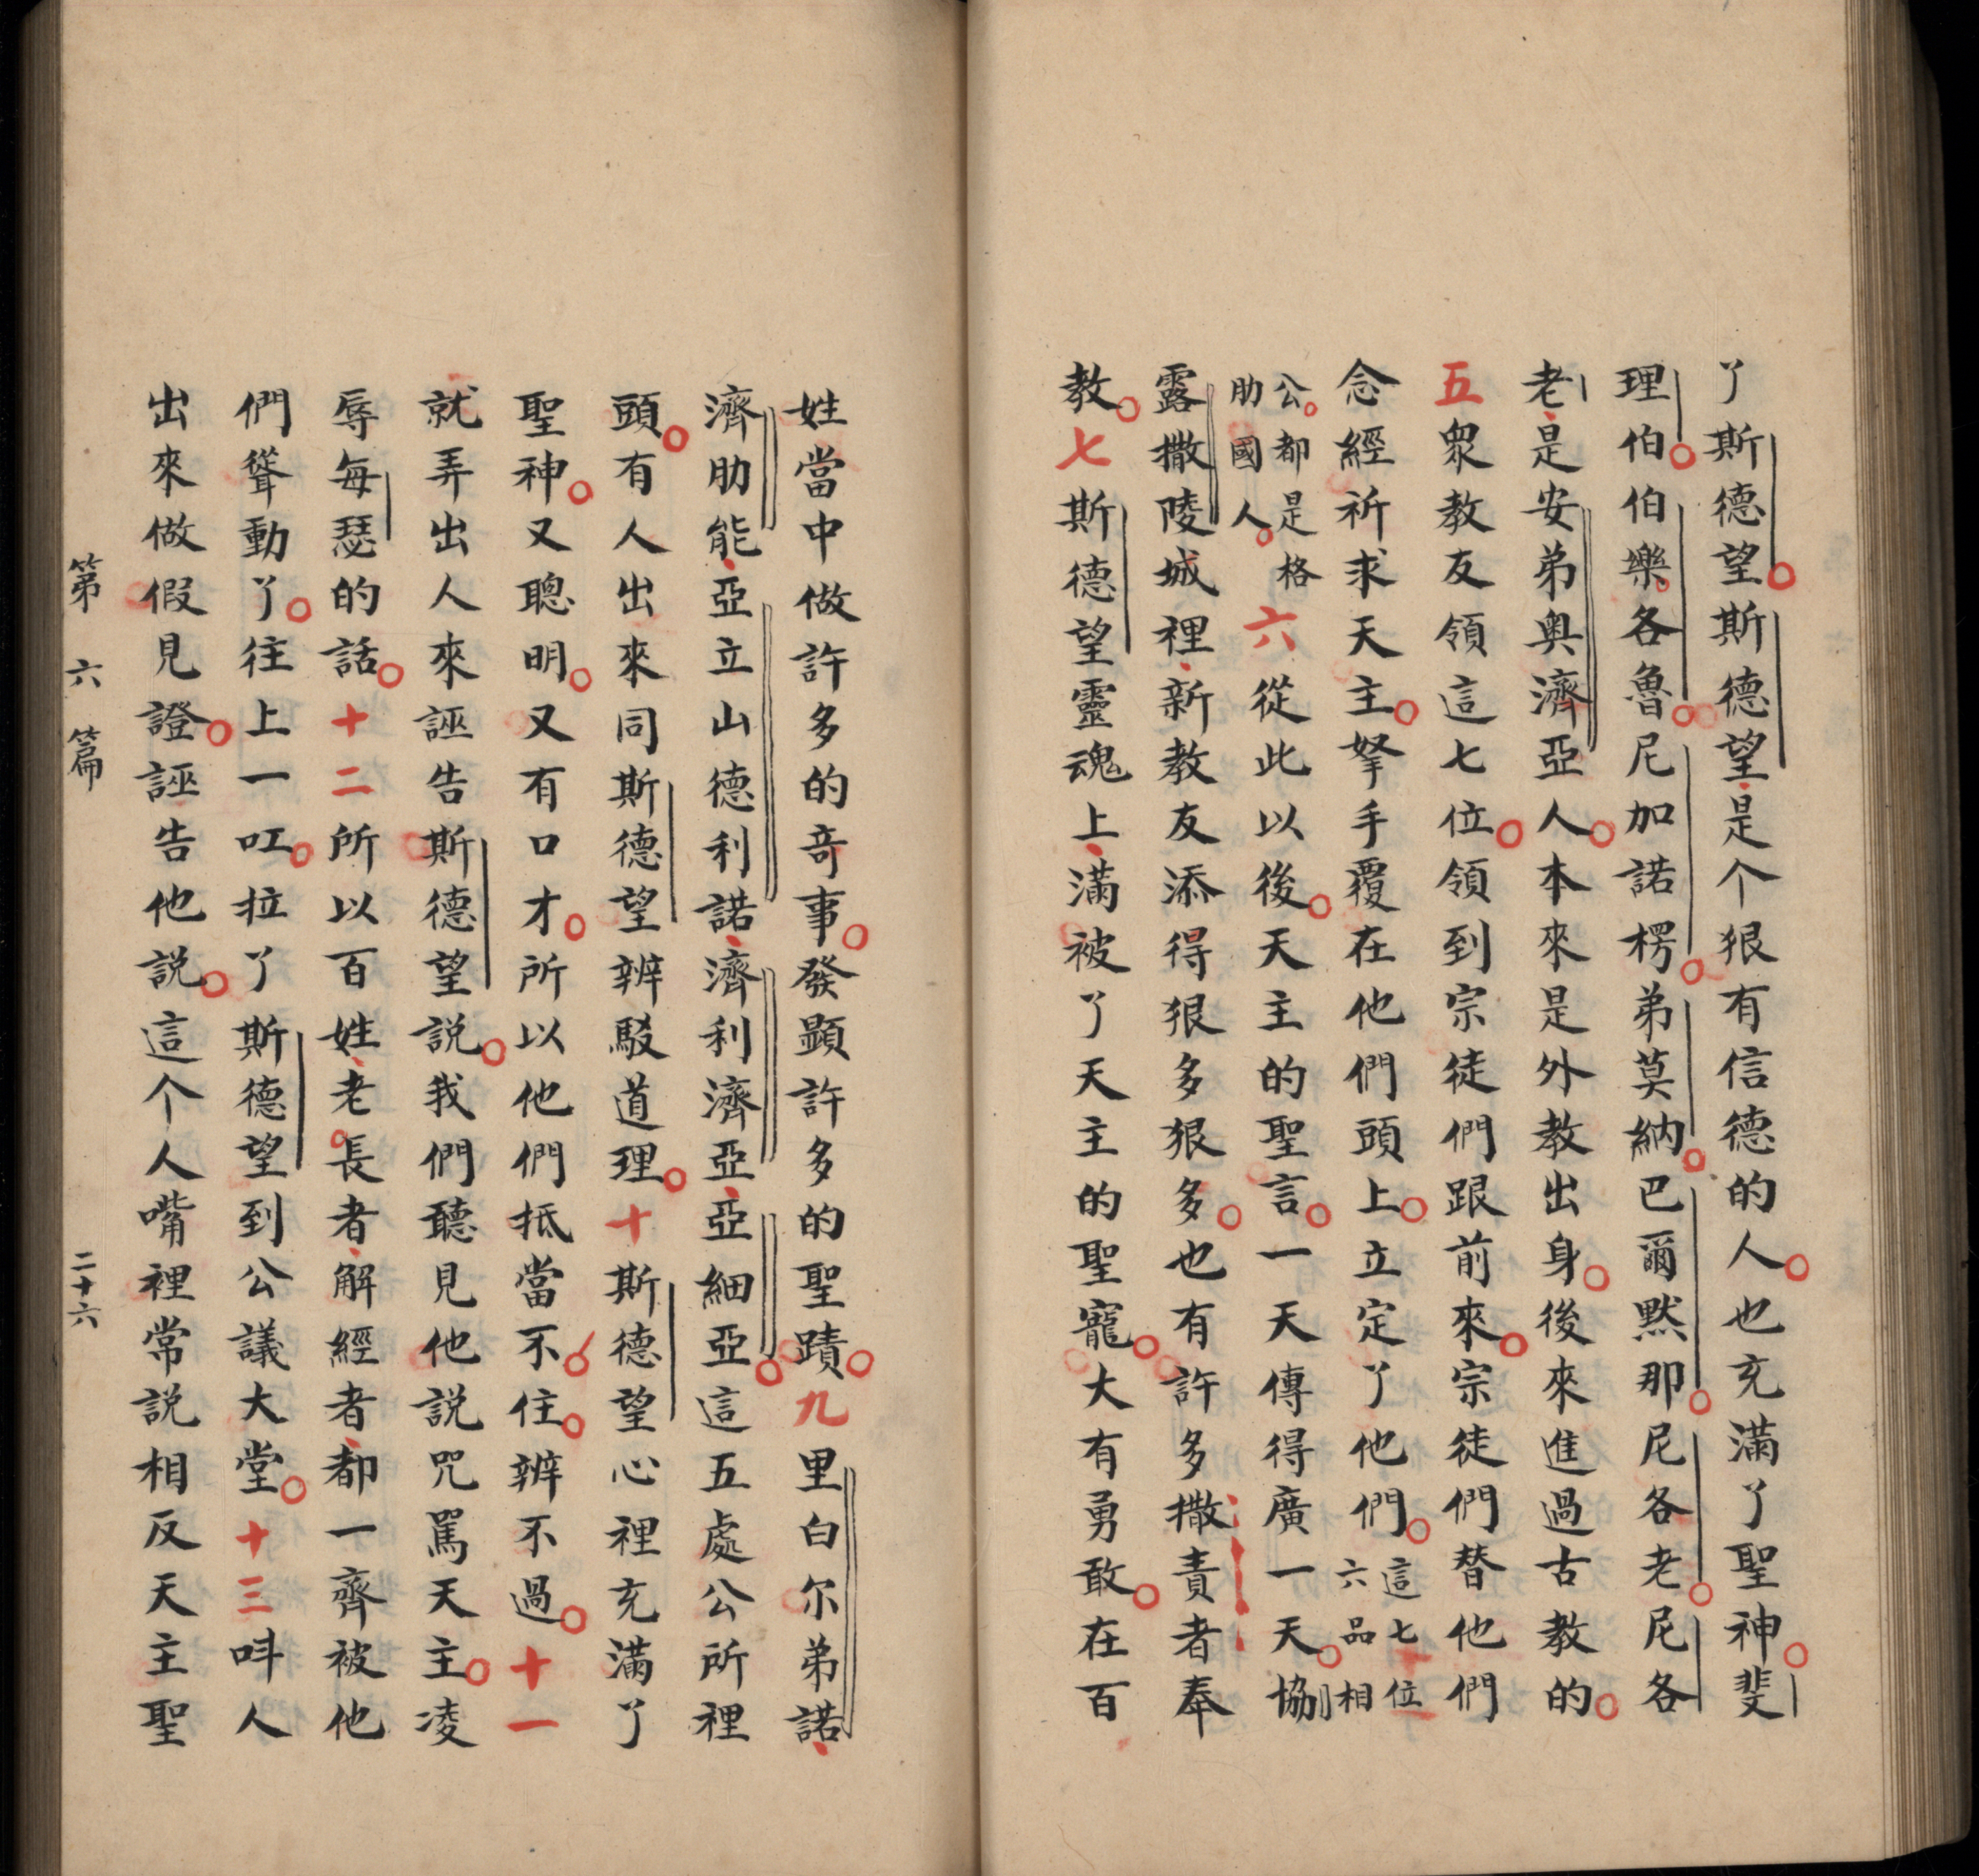 了斯德望斯德望是个狠有信德的人也充滿了聖神斐
理伯伯樂各魯尼加諾楞弟莫納巴爾默那尼各老尼各
老是安弟奥濟亞人本來是外教出身後來進過古教的
五衆教友領這七位領到宗徒們跟前來宗徒們替他們
念經祈求天主拏手覆在他們頭上立定了他們這七位六品相
公都是格肋國人六從此以後天主的聖言一天傳得廣一天協
露撒陵城裡新教友添得狠多狠多也有許多撒責者奉
教七斯德望靈魂上滿被了天主的聖寵大有勇敢在百
姓當中做許多的竒事發顕許多的聖蹟九里白尔弟諾
濟肋能亞立山德利諾濟利濟亞亞細亞這五處公所裡
頭有人出來同斯德望辨駁道理十斯德望心裡充滿了
聖神又聰明又有口才所以他們抵當不住辨不過十一
就弄出人來誣告斯德望説我們聽見他説咒駡天主凌
辱每瑟的話十二所以百姓老長者解經者都一齊被他
們聳動了往上一叿拉了斯德望到公議大堂十三呌人
出來做假見證誣告他説這个人嘴裡常説相反天主聖
第六篇 二十六